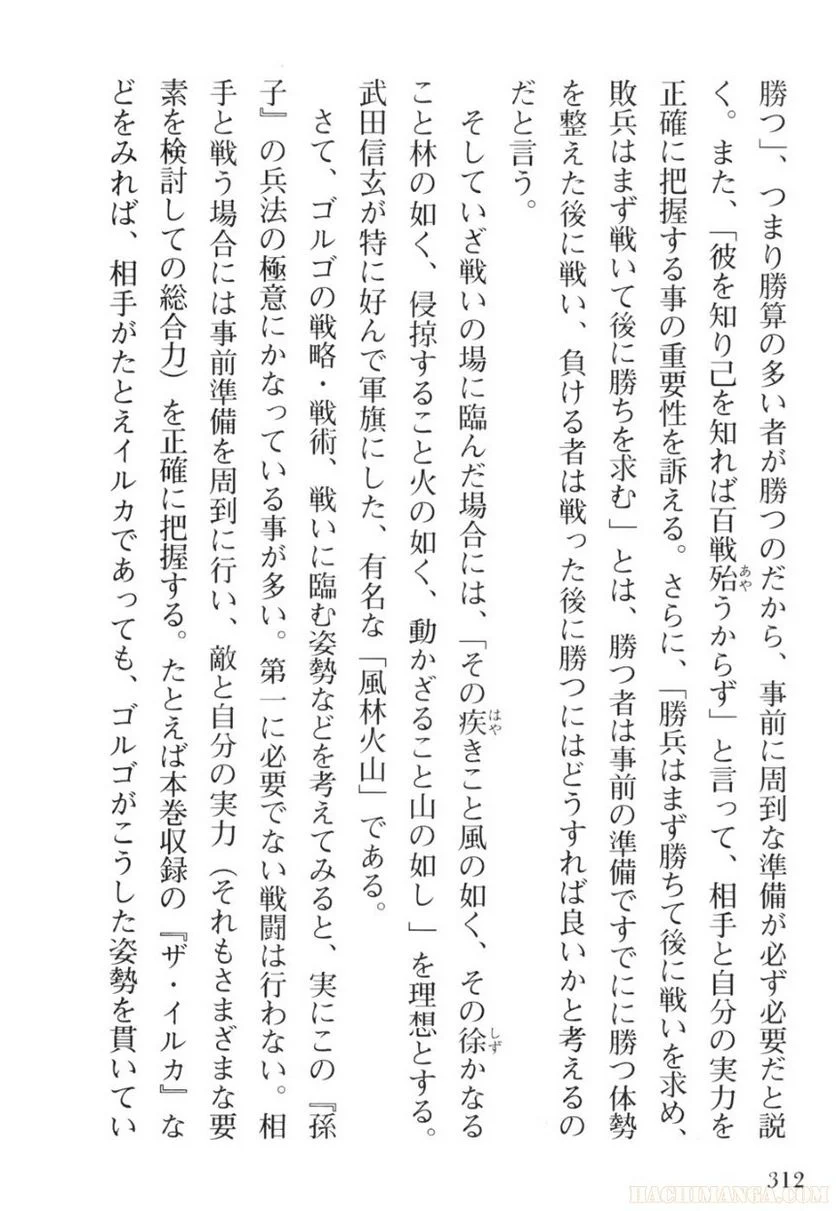 勝つ」、つまり勝算の多い者が勝つのだから、事前に周到な準備が必ず必要だと説
く。また、「彼を知り己を知れば百戦殆うからず」と言って、相手と自分の実力を
あや
正確に把握する事の重要性を訴える。さらに、「勝兵はまず勝ちて後に戦いを求め、
敗兵はまず戦いて後に勝ちを求む」とは、勝つ者は事前の準備ですでにに勝つ体勢
を整えた後に戦い、負ける者は戦った後に勝つにはどうすれば良いかと考えるの
だと言う。
そしていざ戦いの場に臨んだ場合には、「その疾きこと風の如く、その徐かなる
はや
しず
こと林の如く、侵掠すること火の如く、動かざること山の如し」を理想とする。
武田信玄が特に好んで軍旗にした、有名な「風林火山」である。
さて、ゴルゴの戦略・戦術、戦いに臨む姿勢などを考えてみると、実にこの『孫
子』の兵法の極意にかなっている事が多い。第一に必要でない戦闘は行わない。相
手と戦う場合には事前準備を周到に行い、敵と自分の実力（それもさまざまな要
素を検討しての総合力）を正確に把握する。たとえば本巻収録の『ザ・イルカ』な
どをみれば、相手がたとえイルカであっても、ゴルゴがこうした姿勢を貫いてい
312
HACHIMANGA.COM